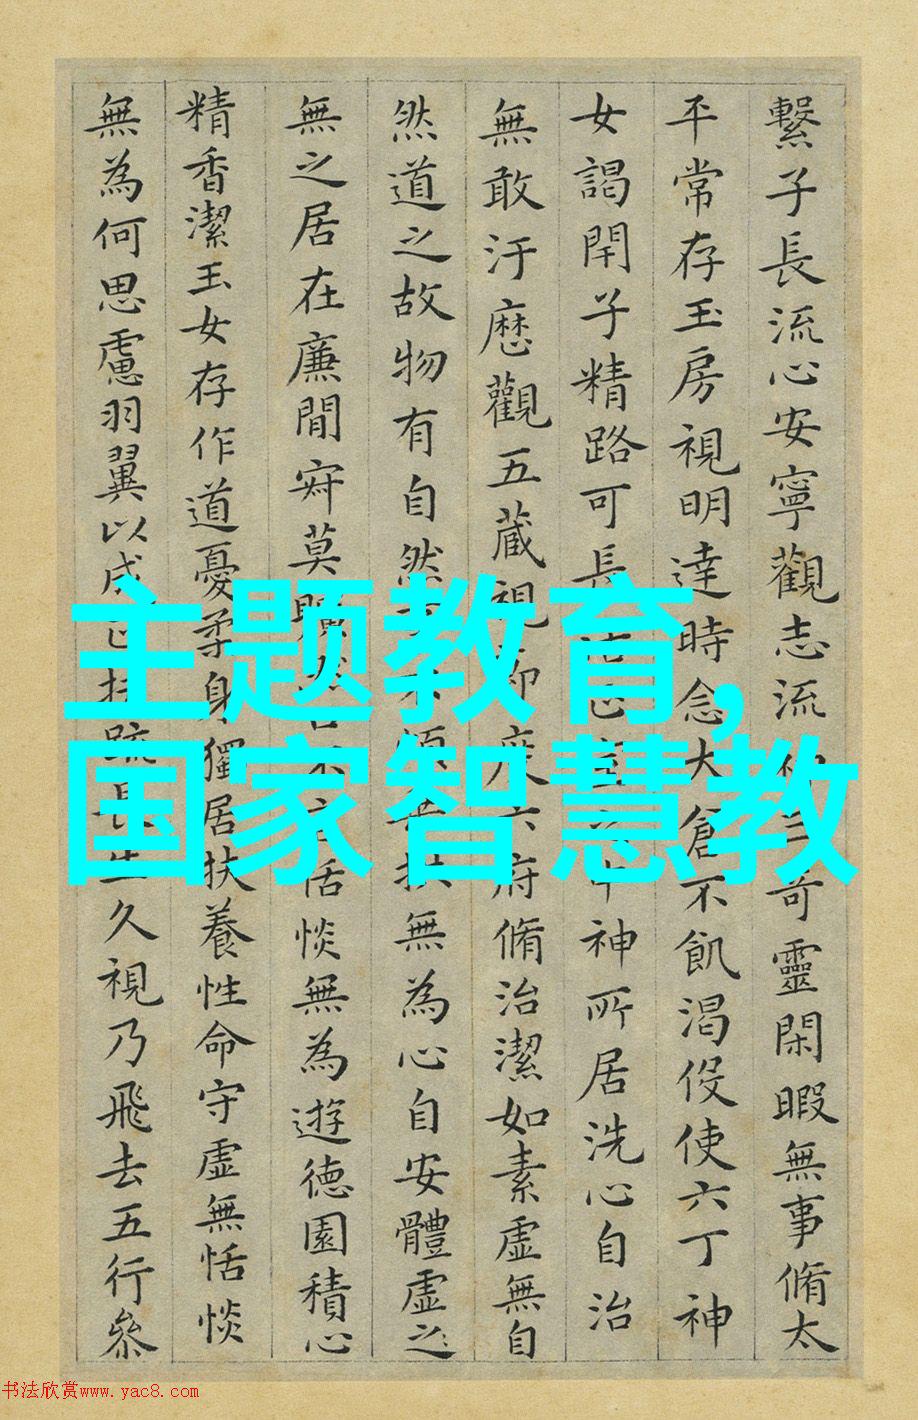 繫子長流心安寧觀志流奇靈閑暇無事脩太
平常存玉房視明達時念大倉不飢渴伇使六丁神
女謁閇子精路可長中神所居洗心自治
無敢汙歷觀五藏視節度六府脩治潔如素虛無自
然道之故物有自然無為心自安體虛之
無之居在廉間寂莫恬惔無為遊德園積心
精香潔玉女存作道憂柔身獨居扶養性命守虛無恬惔
無為何思慮羽翼以成久視乃飛去五行參
主题教育,
国家智慧教
书法欣赏www.yac8.com